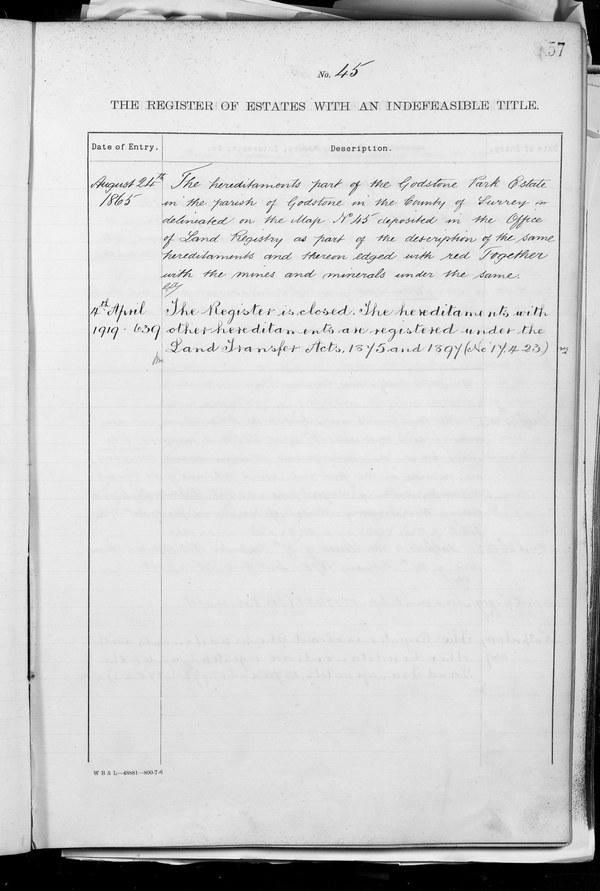 57
No. 45
THE REGISTER OF ESTATES WITH AN INDEFEASIBLE TITLE.
Date of Entry.
Description.
August 24th
1865
The hereditaments part of the Godstone Park Estate
in the parish of Godstone in the County of Surrey as
delineated on the Map No 45 deposited in the Office
of Land Registry as part of the description of the same
hereditaments and thereon edged with red Together
with the mines and minerals under the same.
4th April
1919 - 639
The Register is closed. The hereditaments with
other hereditaments are registered under the
Land Transfer Acts, 1875 and 1897 (No 17,423)
W B & L—49881—800-7-6